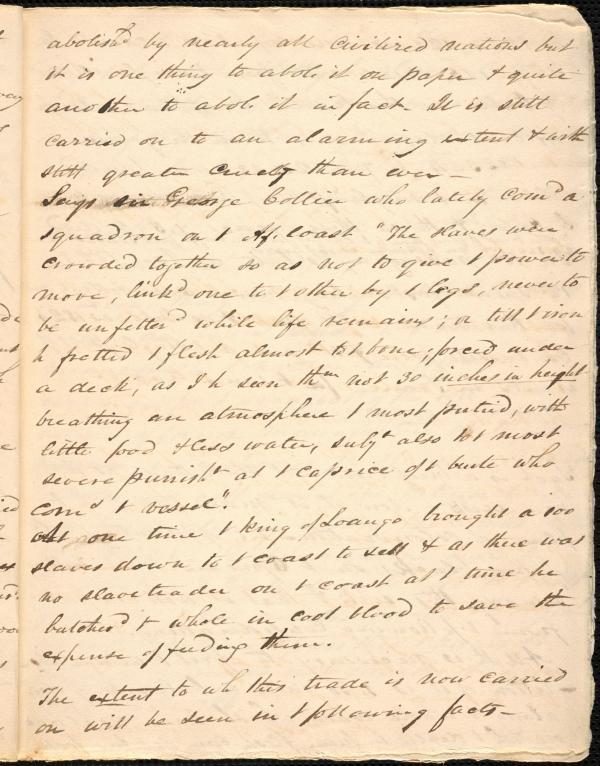 abolish'd by nearly all civilized nations but
it is one thing to abol. it on paper & quite
another to abol. it in fact. It is still
carried on to an alarming extent & with
still greater cruelty than ever —
Says sir George Collier who lately com'd a
squadron on t Af. Coast "The slaves were
crowded together so as not to give t power to
move, link'd one to t other by t legs, never to
be unfetter'd while life remains; or till t iron
h fretted t flesh almost to t bone; forc'd under
a deck, as I h seen thm not 30 inches in height
breathing an atmosphere t most putrid, with
little food & less water, subjt also to t most
severe punisht at t caprice of t brute who
com'd t vessel".
At one time t king of Loango brought a 100
slaves down to t coast to sell & as there was
no slave trader on t coast at t time he
butcher'd t whole in cool blood to save the
expense of feeding them.
The extent to wh this trade is now carried
on will be seen in t following facts —